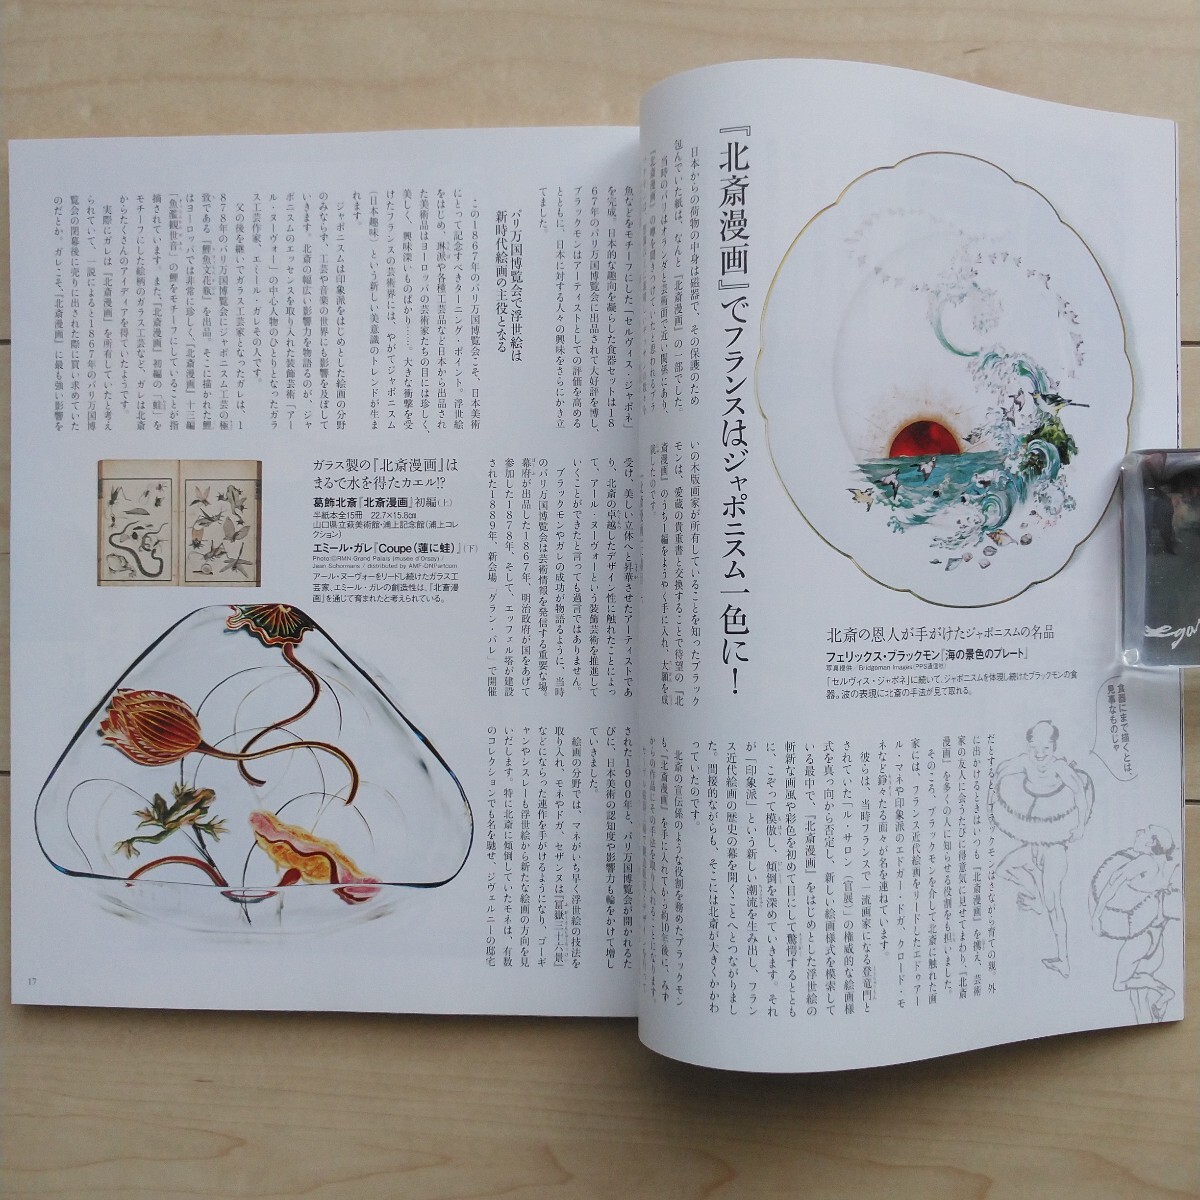 『北斎漫画』でフランスはジャポニスム一色に!
日本からの荷物の中身は磁器で、その保護のため
包んでいた紙は、なんと『北斎漫画』の一部でした。
当時のパリはオランダと芸術面で近い関係にあり、
いの木版画家が所有していることを知ったブラック
モンは、愛蔵の貴重書と交換することで待望の『北
斎漫画』のうち一編をようやく手に入れ、大願を成
就したのです。
北斎の恩人が手がけたジャポニスムの名品
フェリックス・ブラックモン『海の景色のプレート』
写真提供/Bridgeman Images(PPS通信社)
「セルヴィス・ジャポネ」に続いて、ジャポニスムを体現し続けたブラックモンの食
器。波の表現に北斎の手法が見て取れる。
食器にまで描くとは、
見事なものじゃ
だとすると、ブラックモンはさながら育ての親。外
に出かけるときはいつも『北斎漫画』を携え、芸術
家の友人に会うたびに得意気に見せてまわり、『北斎
漫画』を多くの人に知らせる役割を担いました。
そのころ、ブラックモンを介して北斎に触れた画
家には、フランス近代絵画をリードしたエドゥアー
ル・マネや印象派のエドガー・ドガ、クロード・モ
ネなど錚々たる面々が名を連ねています。
彼らは、当時フランスで一流画家になる登竜門と
されていた「ル・サロン(官展)」の権威的な絵画様
式を真っ向から否定し、新しい絵画様式を模索して
いる最中で、『北斎漫画』をはじめとした浮世絵の
斬新な画風や彩色を初めて目にして驚愕するととも
に、こぞって模倣し、傾倒を深めていきます。それ
が「印象派」という新しい潮流を生み出し、フラン
ス近代絵画の歴史の幕を開くことへとつながりまし
た。間接的ながらも、そこには北斎が大きくかかわ
っていたのです。
北斎の宣伝係のような役割を務めたブラックモン
も、『北斎漫画』を手に入れてから約10年後に、みず
からの作品にその手法を取り入れることになります。
魚などをモチーフにした「セルヴィス・ジャポネ」
を完成。日本的な趣向を凝らした食器セットは18
67年のパリ万国博覧会に出品されて大好評を博し、
ブラックモンはアーティストとしての評価を高める
とともに、日本に対する人々の興味をさらにかき立
てました。
パリ万国博覧会で浮世絵は
新時代絵画の主役となる
この1867年のパリ万国博覧会こそ、日本美術
にとって記念すべきターニング・ポイント。浮世絵
をはじめ、琳派や各種工芸品など日本から出品され
た美術品はヨーロッパの芸術家たちの目には珍しく、
美しく、興味深いものばかり……。大きな衝撃を受
けたフランスの芸術界には、やがてジャポニスム
(日本趣味)という新しい美意識のトレンドが生ま
れます。
ジャポニスムは印象派をはじめとした絵画の分野
のみならず、工芸や音楽の世界にも影響を及ぼして
いきます。北斎の幅広い影響力を物語るのが、ジャ
ポニスムのエッセンスを取り入れた装飾芸術「アー
ル・ヌーヴォー」の中心人物のひとりとなったガラ
ス工芸作家、エミール・ガレその人です。
父の後を継いでガラス工芸家となったガレは、1
878年のパリ万国博覧会にジャポニスム工芸の極
致である『鯉魚文花瓶』を出品。そこに描かれた鯉
はヨーロッパでは非常に珍しく、『北斎漫画』十三編
「魚濫観世音」の鯉をモチーフにしていることが指
摘されています。また、『北斎漫画』初編の「蛙」を
モチーフにした絵柄のガラス工芸など、ガレは北斎
からたくさんのアイディアを得ていたようです。
実際にガレは『北斎漫画』を所有していたと考え
られていて、一説によると1867年のパリ万国博
覧会の閉幕後に売りに出された際に買い求めていた
のだとか。ガレこそ、『北斎漫画』に最も強い影響を
ガラス製の『北斎漫画』は
まるで水を得たカエル!?
葛飾北斎『北斎漫画』初編(上)
半紙本全15冊 22.7×15.8cm
山口県立萩美術館・浦上記念館(浦上コレ
クション)
エミール・ガレ『Coupe(蓮に蛙)』(下)
Photo ©RMN Grand Palais (musée d'Orsay) /
Jean Schormans / distributed by AMF-DNPartcom
アール・ヌーヴォーをリードし続けたガラス工
芸家、エミール・ガレの創造性は、『北斎漫
画』を通じて育まれたと考えられている。
受け、美しい立体へと昇華させたアーティストであ
り、北斎の卓越したデザイン性に触れたことによっ
て、アール・ヌーヴォーという装飾芸術を推進して
いくことができたと言っても過言ではありません。
ブラックモンやガレの成功が物語るように、当時
のパリ万国博覧会は芸術情報を発信する重要な場。
幕府が出品した1867年、明治政府が国をあげて
参加した1878年、そして、エッフェル塔が建設
された1889年、新会場「グラン・パレ」で開催
された1900年と、パリ万国博覧会が開かれるた
びに、日本美術の認知度や影響力も輪をかけて増し
ていきました。
絵画の分野では、マネがいち早く浮世絵の技法を
取り入れ、モネやドガ、セザンヌは『冨嶽三十六景』
などにならった連作を手がけるようになり、ゴーギ
ャンやシスレーも浮世絵から新たな絵画の方向を見
いだします。特に北斎に傾倒していたモネは、有数
のコレクションでも名を馳せ、ジヴェルニーの邸宅
17